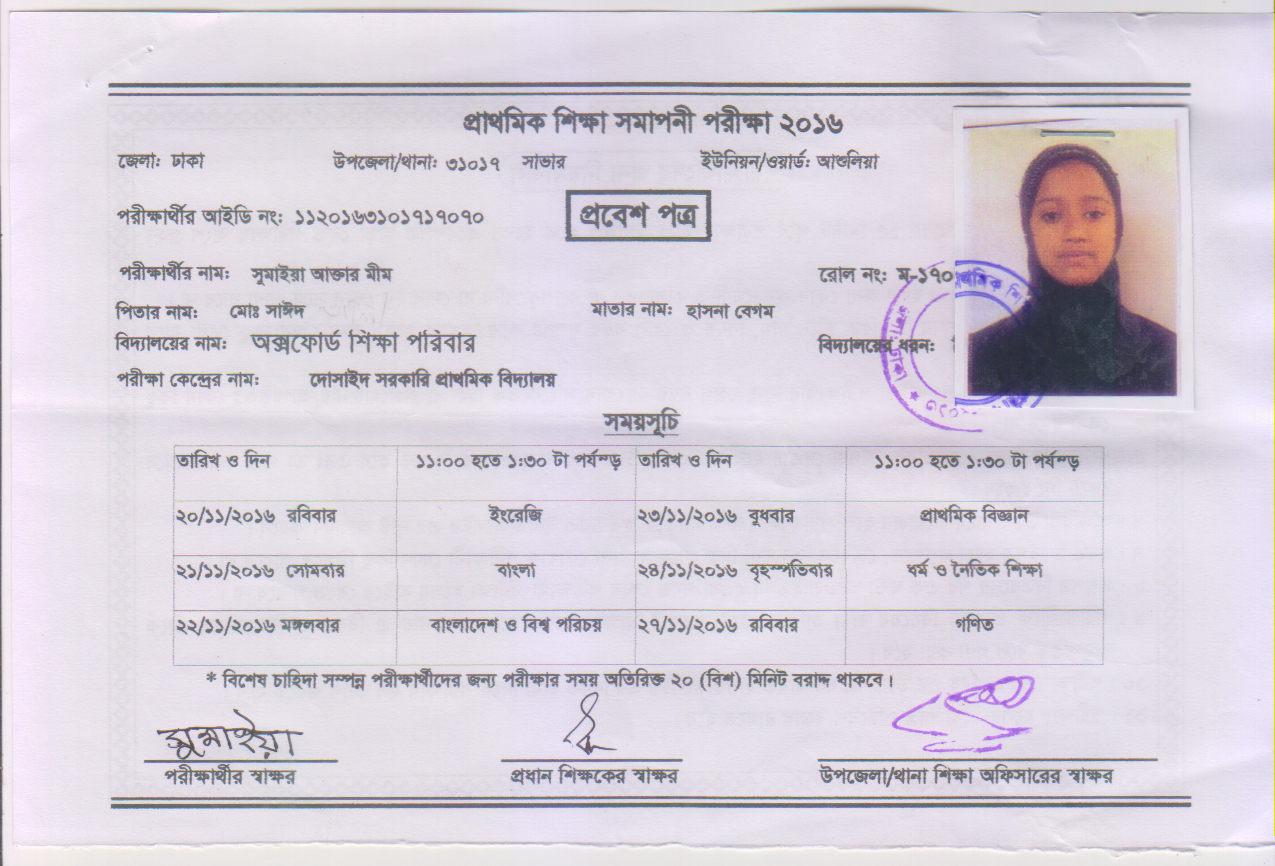 প্রাথমিক শিক্ষা সমাপনী পরীক্ষা ২০১৬
জেলা: ঢাকা উপজেলা/থানা: ৩১০১৭ সাভার ইউনিয়ন/ওয়ার্ড: আশুলিয়া
পরীক্ষার্থীর আইডি নং: ১১২০১৬৩১০১৭১৭০৭০ প্রবেশ পত্র
পরীক্ষার্থীর নাম: সুমাইয়া আক্তার মীম রোল নং: ম-১৭০
পিতার নাম: মোঃ সাঈদ মাতার নাম: হাসনা বেগম
বিদ্যালয়ের নাম: অক্সফোর্ড শিক্ষা পরিবার বিদ্যালয়ের ধরন:
পরীক্ষা কেন্দ্রের নাম: দোসাইদ সরকারি প্রাথমিক বিদ্যালয়
সময়সূচি
তারিখ ও দিন ১১:০০ হতে ১:৩০ টা পর্যন্ড় তারিখ ও দিন ১১:০০ হতে ১:৩০ টা পর্যন্ড়
২০/১১/২০১৬ রবিবার ইংরেজি ২৩/১১/২০১৬ বুধবার প্রাথমিক বিজ্ঞান
২১/১১/২০১৬ সোমবার বাংলা ২৪/১১/২০১৬ বৃহস্পতিবার ধর্ম ও নৈতিক শিক্ষা
২২/১১/২০১৬ মঙ্গলবার বাংলাদেশ ও বিশ্ব পরিচয় ২৭/১১/২০১৬ রবিবার গণিত
* বিশেষ চাহিদা সম্পন্ন পরীক্ষার্থীদের জন্য পরীক্ষার সময় অতিরিক্ত ২০ (বিশ) মিনিট বরাদ্দ থাকবে।
সুমাইয়া
পরীক্ষার্থীর স্বাক্ষর প্রধান শিক্ষকের স্বাক্ষর উপজেলা/থানা শিক্ষা অফিসারের স্বাক্ষর